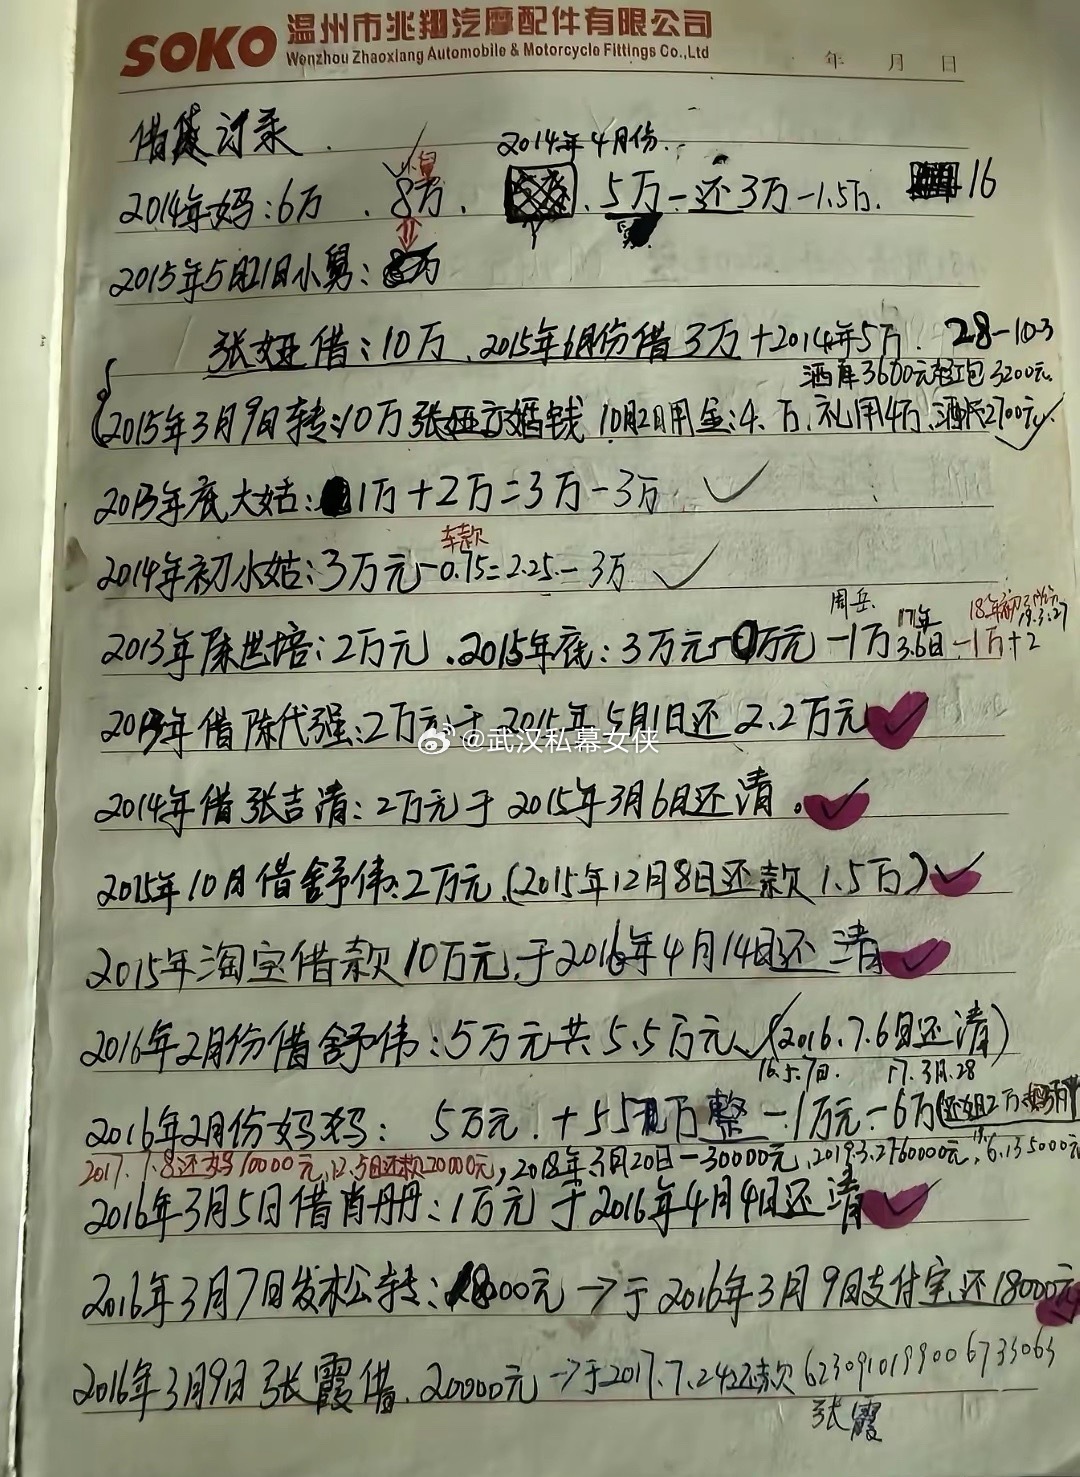 SOKO 温州市兆翔汽摩配件有限公司
Wenzhou Zhaoxiang Automobile & Motorcycle Fittings Co.,Ltd
年 月 日
借贷记录.
2014年4月份.
2014年妈:6万 . 8万. 5万-还3万-1.5万. 16
2015年5月21日小舅:
张娅借:10万.2015年6月份借3万+2014年5万. 28-10-3
酒席3600元 红包3200元.
2015年3月9日转:10万张娅 婚钱 10月2日用金:4.万.礼用4万.酒 2700元
2013年底大姑:1万+2万=3万-3万
车款
2014年初小姑:3万元-0.75=2.25-3万
周岳. 17年 18年初 19.3.27
2013年陈世培:2万元.2015年底:3万元- 万元-1万 3.6日-1万+2
年借陈代强:2万元于2015年5月1日还2.2万元
@武汉私募女侠
2014年借张吉清:2万元于2015年3月6日还清.
2015年10月借舒伟:2万元.(2015年12月8日还款1.5万)
2015年淘宝借款10万元.于2016年4月14日还清
2016年2月份借舒伟:5万元共5.5万元(2016.7.6日还清)
16.5.7日. 17.3月.28
2016年2月份妈妈: 5万元.+5.5 万整-1万元-6万(还姐2万
2017.7.8还妈10000元,12.5日还款20000元,2018年3月20日-30000元,2019.3.27 60000元,6.13 5000元
2016年3月5日借肖丹丹:1万元于2016年4月4日还清
2016年3月7日发松转:18000元→于2016年3月9日支付宝还18000元
2016年3月9日张霞借.20000元→于2017.7.24还款6230910199006733063
张霞